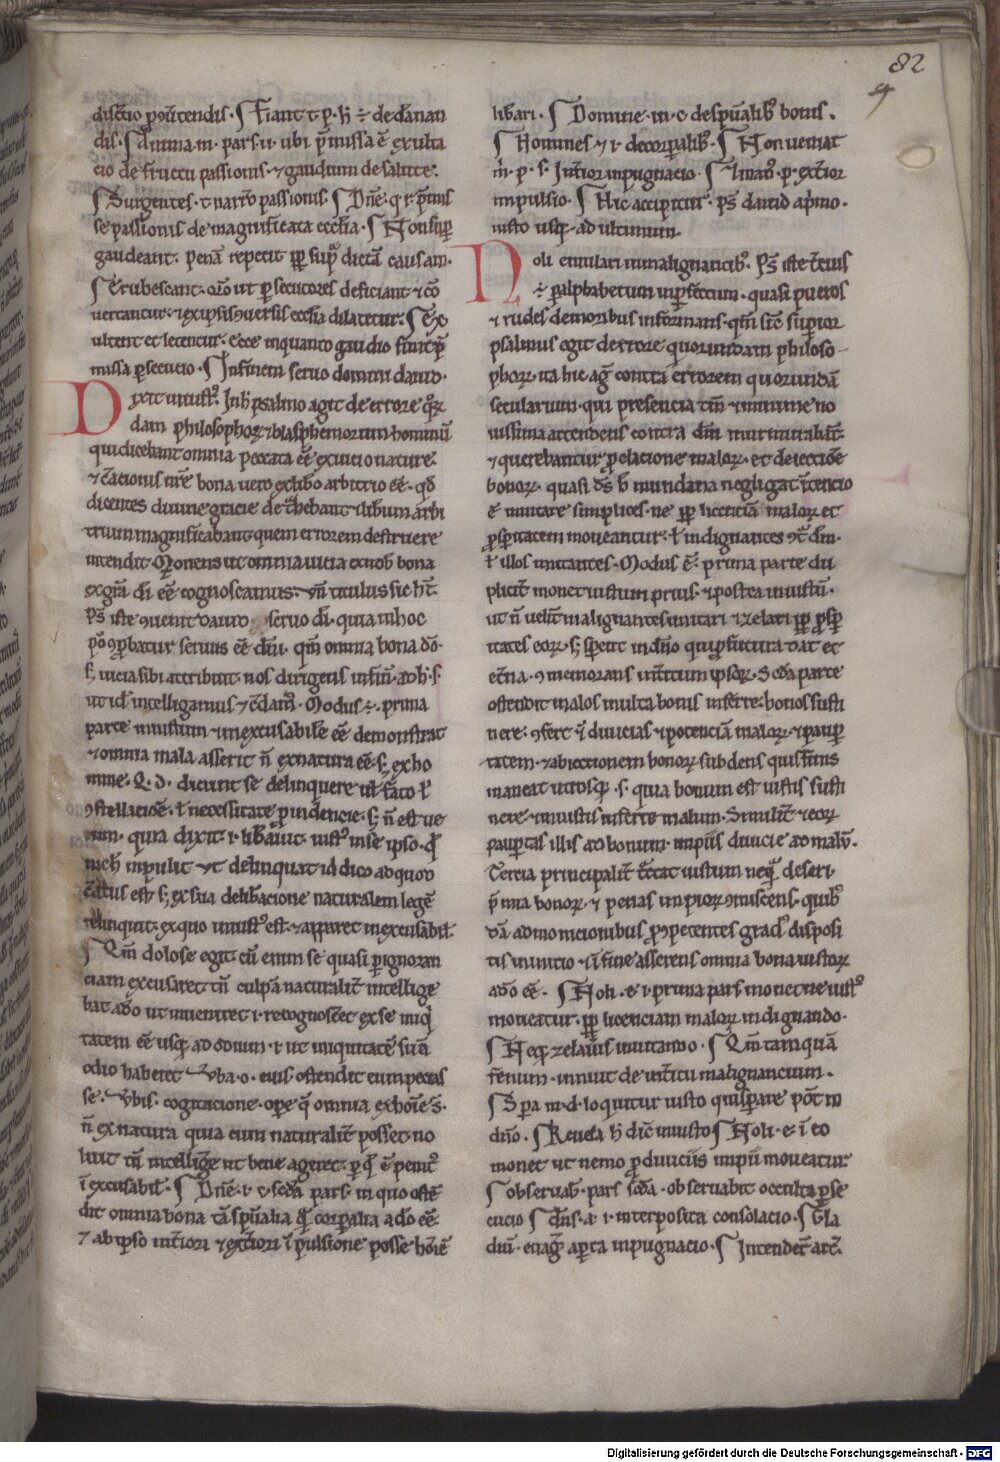 82
9
discᵉio ꝯᵗͥtendis. Fiant t. p. h̄ ÷ de dānan
dis. Diuina. m. pars. ii. ubi p̄missa ē exulta
cio de fructu passionis. ⁊ gaudium de salute.
Surgentes. t. narrō passionis. Dn̄e. q. r. p̄missis
se passionis de magnificata ecclīa. Non sup̄
gaudeant. penā repetit ꝓpt̄ sup̄ᵃ dictā causam.
Erubescant. orō ut ꝑsecutores deficiant ⁊ cō
uertantur. ⁊ ex ipsis ꝯuersis ecclīa dilatetur. Ex
ultent et letentur. ecce in quanto gaudio finit̄ p̄
missa ꝑsecucio. In finem seruo domini dauid.
Dixit iniustꝰ. In h̄ psalmo agit de errore qͦrū
dam philosophoꝝ ⁊ blasphemorum hominū
qui dicebant omnia peccata eē ex uicio nature.
⁊ c̄acionis nr̄e bona uero ex libo arbitrio eē. qd̄
dicentes diuine gracie det̄hebant ⁊ libum arbi
trium magnificabant quem errorem destruere
intendit. Monens ut omnia uicia ex nob̄ bona
ex gr̄a di eē cognoscamus. un̄ titulus sic h̄t.
Ps̄ iste ꝯuenit dauid seruo di. quia in hoc
ps̄o ꝯprobatur seruus eē dn̄i. qm̄ omnia bona dō.
s; uicia sibi attribuit. nos dirigens in finē. ad h̄. s.
ut id intelligamus ⁊ c̄damꝰ. Modus ÷. prima
parte iniustum ⁊ inexcusabilē eē demonstrat
⁊ omnia mala asserit n̄ ex natura eē. s; ex ho
mine. Q. d. dicunt se delinquere uel fato ł
ꝯstellacioē. ł necessitate ꝓuidencie. s; n̄ est ue
rum. quia dixit. i. libauit. iustꝰ in se ipso. qd̄
nich̄ inpulit ut delinquat id dico ad quod
c̄atus est s; ex sua delibacione naturalem legē
relinquit. ex quo iniustꝰ est. ⁊ apparet inexcusabił.
Qm̄ dolose egit. cū enim se quasi p̄ ignoran
ciam excusaret. tn̄ culpā naturalit̄ intellige
bat adeo ut inueniret. i. recognosc̄et ex se iniqͥ
tatem eē usqꝫ ad odium. i. ut iniquitatē suā
odio haberet. Vba. o. eius. ostendit eum pecas
se. Vbis. cogitacione. ope. q̄ omnia ex hoīe s̄.
n̄ ex natura quia cum naturalit̄ posset no
luit tn̄ intelligere ut bene ageret. ꝑ qd̄ ē penitꝰ
īexcusabił. Dn̄e. i. c. scd̄a pars. in quo ostē
dit omnia bona tā spūalia q̄ corꝑalia a dō eē.
⁊ ab ipso int̄iori ⁊ ext̄iori īpulsione posse hoīē
libari. Domine. in. c. de spūalibꝰ bonis.
Homines ⁊ i. de corꝑalibꝰ. Non ueniat
m̄. p. s. Int̄ior inpugnacio. ⁊ manꝰ. p. ext̄ior
impulsio. Hic accipitur. ps̄ dauid ap̄mo.
iusto usqꝫ ad ultimum.
Noli emulari in malignantibꝰ. Ps̄ iste t̄cius
÷ ꝑ alphabetum inꝑfectum. quasi pueros
⁊ rudes de moribus informans. qm̄ sic̄ superior
psalmus egit de errore quorundam philoso
phoꝝ. ita hic agit contra errorem quorundā
secularium. qui presencia tm̄ ⁊ minime no
uissima attendens contra dm̄ murmurabāt.
⁊ querebantur ꝓ elacione maloꝝ. et deieccioē
bonoꝝ. quasi ds̄ h̄ mundana negligat. Intencio
ē mutare simplices. ne ꝓpt̄ licenciā maloꝝ et
ꝓsꝑitatem moueantur. ł indignantes ꝯᵗͣ dm̄.
ł illos imitantes. Modus ē. prima parte du
plicit̄ monet iustum prius. ⁊ postea iniustū.
ut n̄ uelit malignantes imitari ⁊ zelari ꝓpt̄ ꝓsꝑi
tates eoꝝ. s; speret in dn̄o qui ꝑfectura dat et
et̄na. ꝯmemorans int̄itum ipsoꝝ. Scd̄a parte
ostendit malos multa bonis inferre. bonos susti
nere. ꝯfert ī diuicias ⁊ potenciā maloꝝ. ⁊ pauꝑ
tatem. ⁊ abieccionem bonoꝝ. subdens qui finis
maneat utrosqꝫ. s. quia bonum est iustis susti
nere ⁊ iniustis inferre malum. Similit̄ ⁊ eoꝝ
pauꝑtas illis ad bonum. impiis diuicie ad malū.
Tercia principalit̄ t̄ctat iustum neqͣ deseri.
p̄mia bonoꝝ. ⁊ penas impioꝝ ꝯmiscens. quibꝰ
dā admonicionibus ꝓ ꝯpetentes gradꝰ disposi
tis in inicio. ī fine asserens omnia bona iustoꝝ
a dō eē. Noli. e. i. prima pars monet ne iustꝰ
moueatur. ꝓpt̄ licenciam maloꝝ indignando.
Neqꝫ zelaūis imitando. Qm̄ tamquā
fenum. innuit de int̄itu malignancium.
Spera in. d. loquitur iusto qui sꝑare pōt in
dn̄o. Reuela h̄ dic̄ iniusto Noli. e. i eo
monet ut nemo ꝓ diuiciis impii moueatur
obseruab̄. pars scd̄a. obseruabit occulta ꝑse
cucio dn̄s. a. i. interposita consolacio. Gla
diū. euaḡ. aꝑta inpugnacio. Intender̄ arc̄.
Digitalisierung gefördert durch die Deutsche Forschungsgemeinschaft - DFG